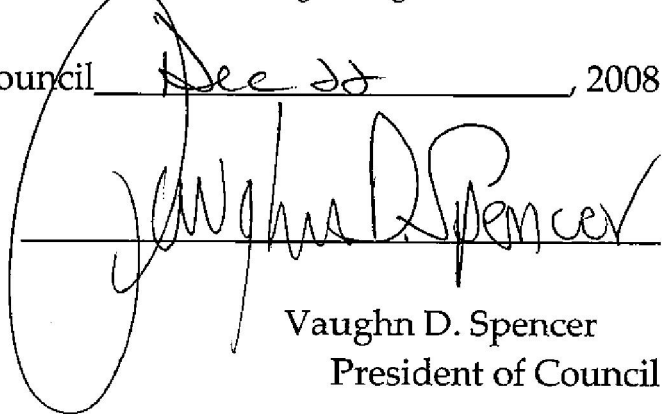 ouncil Dec 22, 2008
Vaughn D. Spencer
Vaughn D. Spencer
President of Council